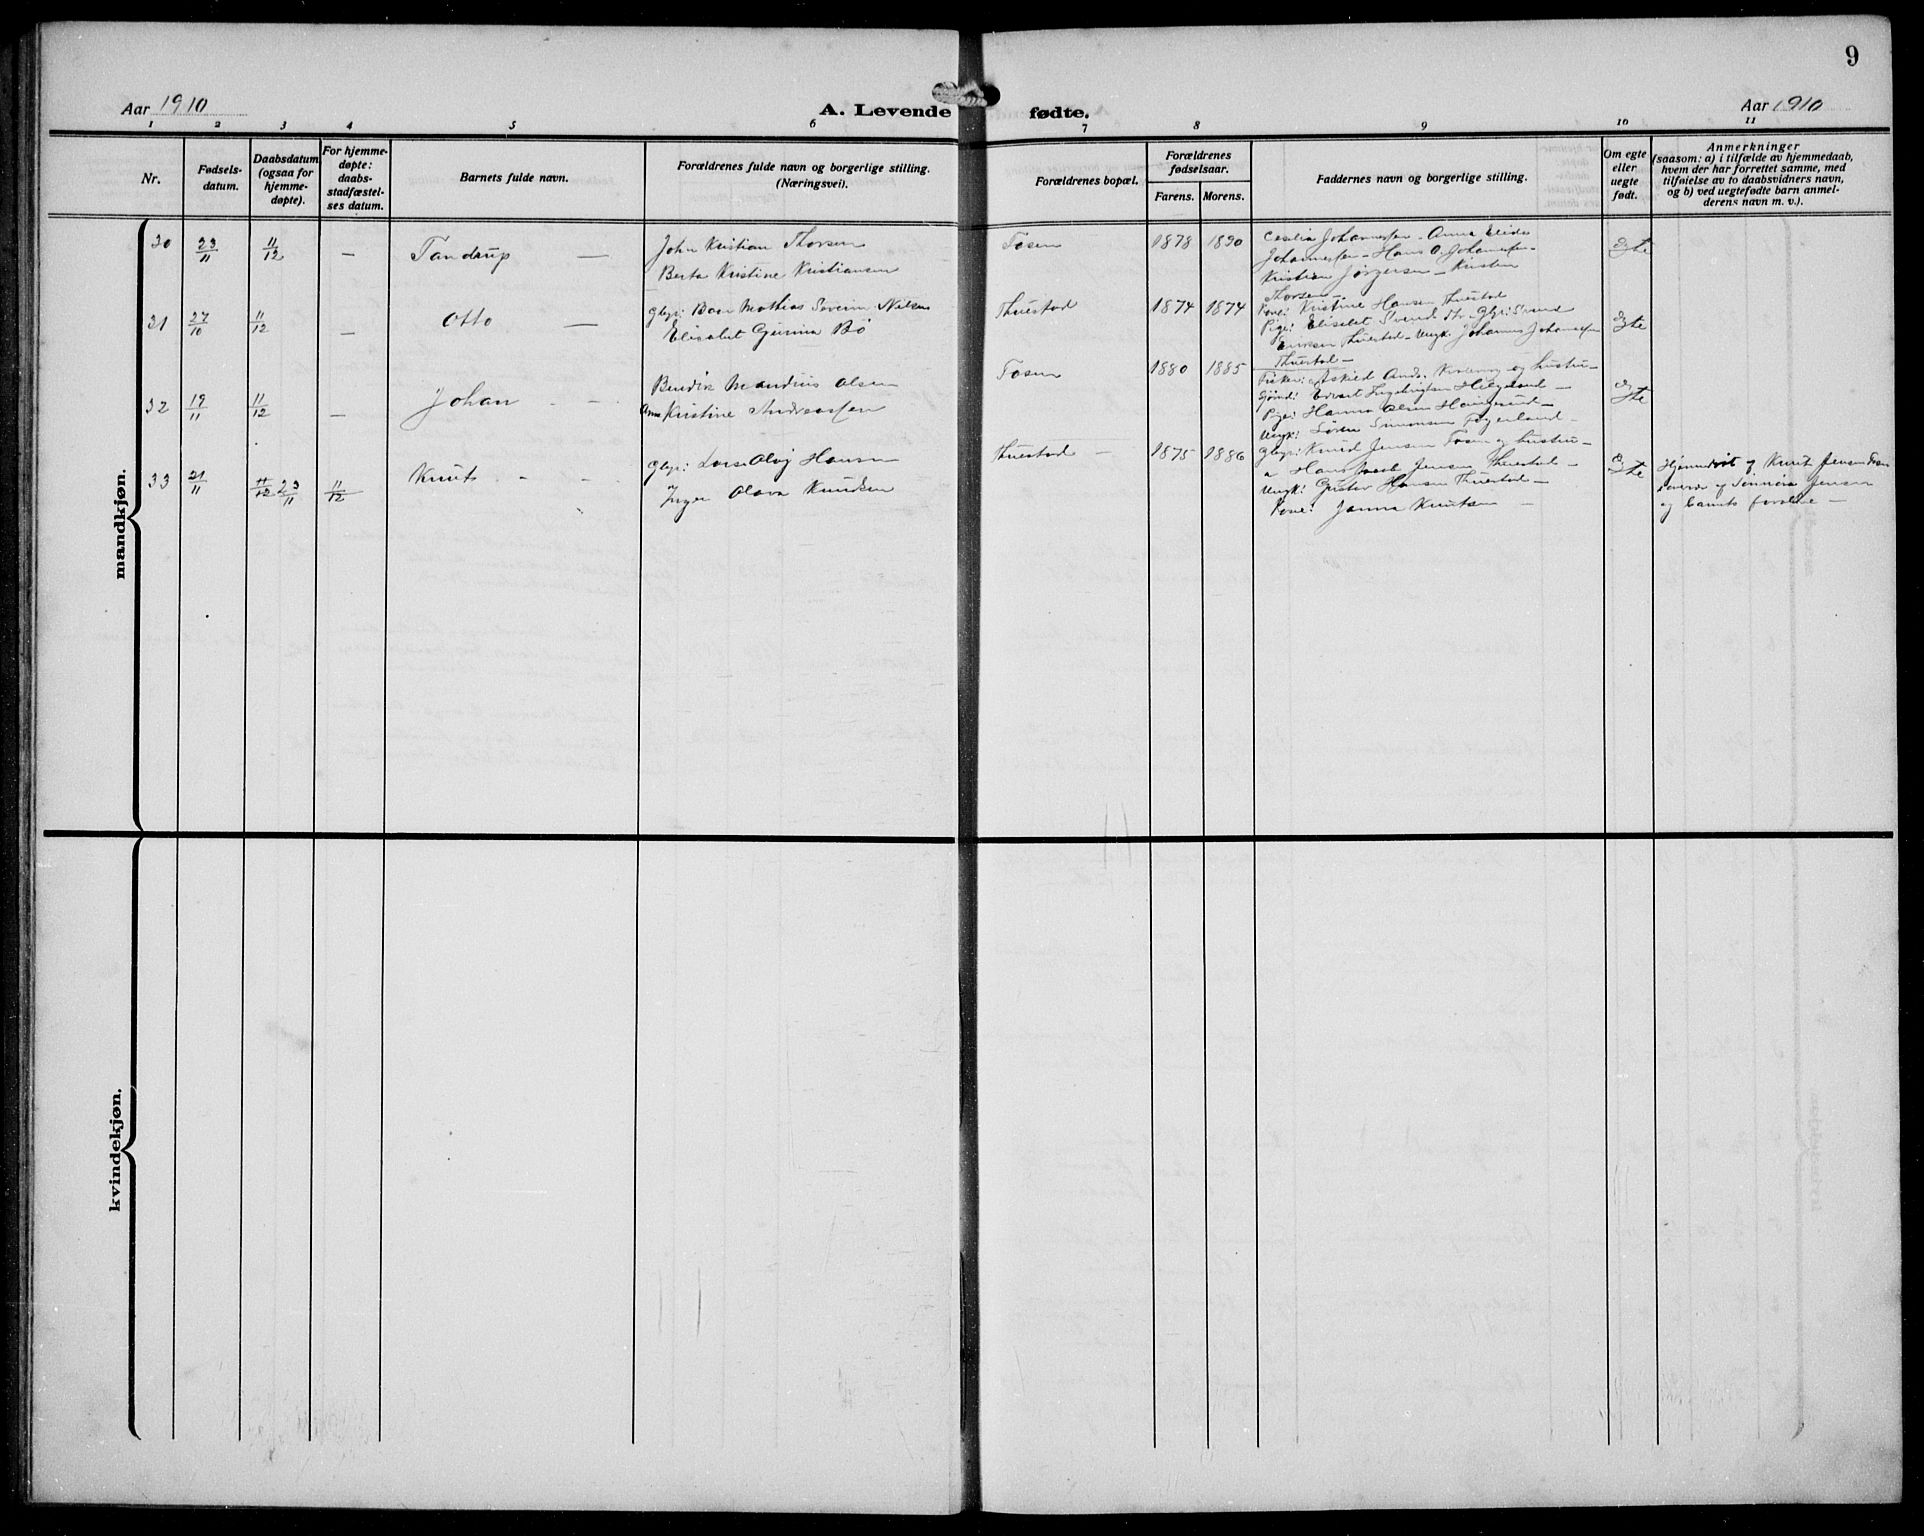 9
Aar 1910
A. Levende
fødte.
Aar 1910
1 2 3 4 5 6 7 8 9 10 11
Nr.
Fødsels-
datum.
Daabsdatum
(ogsaa for
hjemme-
døpte).
For hjemme-
døpte:
daabs-
stadfæstel-
ses datum.
Barnets fulde navn.
Forældrenes fulde navn og borgerlige stilling.
(Næringsvei).
Forældrenes bopæl.
Forældrenes
fødselsaar.
Farens. Morens.
Faddernes navn og borgerlige stilling.
Om egte
eller
uegte
født.
Anmerkninger
(saasom: a) i tilfælde av hjemmedaab,
hvem der har forrettet samme, med
tilføielse av to daabsvidners navn,
og b) ved uegtefødte barn anmel-
derens navn m. v.).
mandkjøn.
30 23/11 11/12 — Tandrup —
John Kristian Thorsen
Berta Kristine Kristiansen
Tosen 1878 1890
Cecilia Johannessen - Anna
Johannessen - Hans O. Johannessen
Kristian Jørgensen - Kristen
Thorsen -
Egte
31 27/10 11/12 — Otto —
Mathias Severin Nilsen
Elisabet Gurina Bø
Thuestad 1874 1874
Kone: Kristine Hansen Thuestad
Pige: Elisabet
Thuestad - Ungk: Johannes Johannessen
Thuestad -
Egte
32 19/11 11/12 — Johan - -
Bendik Mandius Olsen
Anna Kristine Andreassen
Tosen 1880 1885
Fisker: Askild og hustru -
Pige: Hanna Olsen Haugesund -
Ungk: Søren Simonsen
Egte
33 21/11 11/12 23/11 11/12 Knut - -
Hansen
Inger Olava Knudsen
Thuestad - 1875 1886
Knud Jensen Tosen og hustru -
Hans Jensen Thuestad -
Ungk: Gustav Hansen Thuestad -
Kone: Janna Knutsen -
Egte
Hjemmedøpt af Knut Jensen Tosen
og Jensen
og barnets forældre -
kvindekjøn.